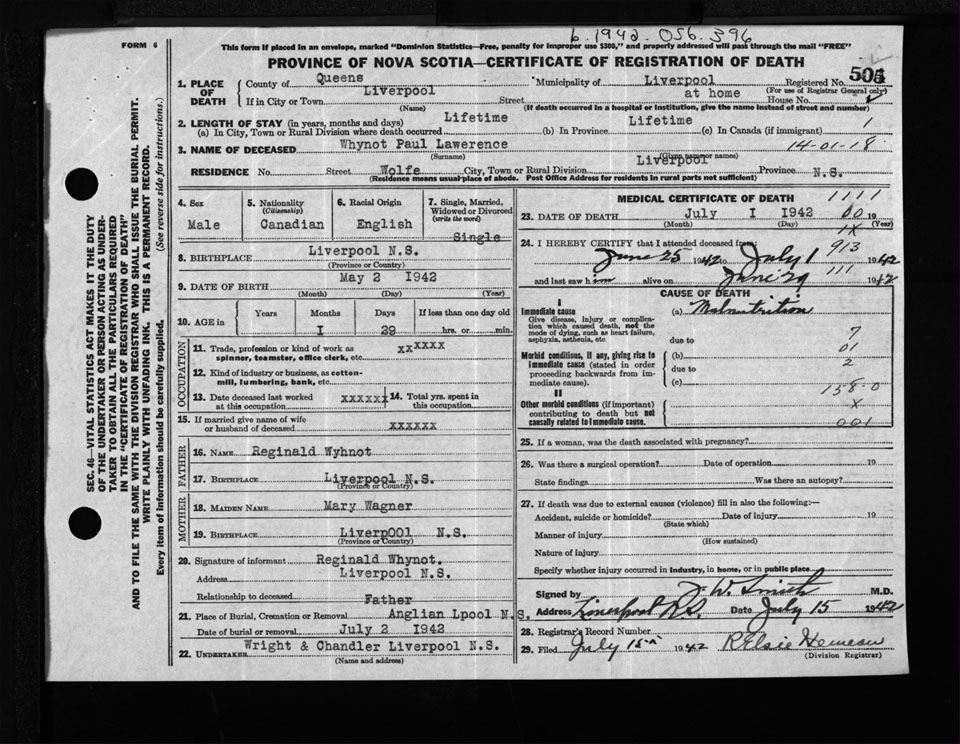 b. 1942. 056.396
FORM 6
This form if placed in an envelope, marked "Dominion Statistics—Free, penalty for improper use $300," and properly addressed will pass through the mail "FREE"
PROVINCE OF NOVA SCOTIA—CERTIFICATE OF REGISTRATION OF DEATH
SEC. 46—VITAL STATISTICS ACT MAKES IT THE DUTY
OF THE UNDERTAKER OR PERSON ACTING AS UNDER-
TAKER TO OBTAIN ALL THE PARTICULARS REQUIRED
IN THE "CERTIFICATE OF REGISTRATION OF DEATH"
AND TO FILE THE SAME WITH THE DIVISION REGISTRAR WHO SHALL ISSUE THE BURIAL PERMIT.
WRITE PLAINLY WITH UNFADING INK. THIS IS A PERMANENT RECORD.
Every item of Information should be carefully supplied. (See reverse side for instructions.)
1. PLACE OF DEATH County of Queens Municipality of Liverpool Registered No.
(For use of Registrar General only)
If in City or Town Liverpool Street at home House No.
(Name) (If death occurred in a hospital or institution, give the name instead of street and number)
2. LENGTH OF STAY (in years, months and days)
(a) In City, Town or Rural Division where death occurred Lifetime (b) In Province Lifetime (c) In Canada (if immigrant) 1
3. NAME OF DECEASED Whynot Paul Lawerence 14-01-18
(Surname) (Given name or names)
RESIDENCE No. Street Wolfe City, Town or Rural Division Liverpool Province N.S.
(Residence means usual place of abode. Post Office Address for residents in rural parts not sufficient)
4. Sex Male
5. Nationality (Citizenship) Canadian
6. Racial Origin English
7. Single, Married, Widowed or Divorced (write the word) Single
8. BIRTHPLACE Liverpool N.S.
(Province or Country)
9. DATE OF BIRTH May 2 1942
(Month) (Day) (Year)
10. AGE in Years Months Days If less than one day old
I 29 hrs. or min.
OCCUPATION
11. Trade, profession or kind of work as spinner, teamster, office clerk, etc. xxxxxx
12. Kind of industry or business, as cotton-mill, lumbering, bank, etc.
13. Date deceased last worked at this occupation xxxxxx
14. Total yrs. spent in this occupation
15. If married give name of wife or husband of deceased xxxxxx
FATHER
16. NAME Reginald Wyhnot
17. BIRTHPLACE Liverpool N.S.
(Province or Country)
MOTHER
18. MAIDEN NAME Mary Wagner
19. BIRTHPLACE LiverpOOl N.S.
(Province or Country)
20. Signature of informant Reginald Whynot.
Address Liverpool N.S.
Relationship to deceased Father
21. Place of Burial, Cremation or Removal Anglian Lpool N.S.
Date of burial or removal July 2 1942
22. UNDERTAKER Wright & Chandler Liverpool N.S.
(Name and address)
MEDICAL CERTIFICATE OF DEATH 1111
23. DATE OF DEATH July I 1942 00 19
(Month) (Day) (Year)
1x
24. I HEREBY CERTIFY that I attended deceased from: 913
June 25 1942 to July 1 1942
111
and last saw him alive on June 29 1942
CAUSE OF DEATH
I
Immediate cause (a) Malnutrition
Give disease, injury or complication which caused death, not the mode of dying, such as heart failure, asphyxia, asthenia, etc
due to 7
01
Morbid conditions, if any, giving rise to immediate cause (stated in order proceeding backwards from immediate cause). (b)
due to 2
(c)
158·0
II
Other morbid conditions (if important) contributing to death but not causally related to immediate cause.
x
001
25. If a woman, was the death associated with pregnancy?
26. Was there a surgical operation? Date of operation 19
State findings Was there an autopsy?
27. If death was due to external causes (violence) fill in also the following:—
Accident, suicide or homicide? Date of injury 19
(State which)
Manner of injury
(How sustained)
Nature of injury
Specify whether injury occurred in industry, in home, or in public place
Signed by J. W. Smith M.D.
Address Liverpool N.S. Date July 15 1942
28. Registrar's Record Number
29. Filed July 15th 1942 R Elsie
(Division Registrar)